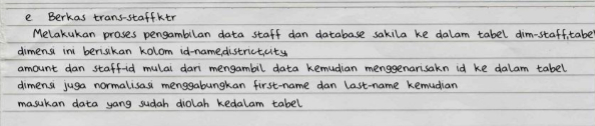 e Berkas trans-staffktr
Melakukan proses pengambilan data staff dan database sakila ke dalam tabel dim-staff,tabel
dimensi ini berisikan kolom id-name,district,city
amount dan staff-id mulai dari mengambil data kemudian menggenarisakn id ke dalam tabel
dimensi juga normalisasi menggabungkan first-name dan last-name kemudian
masukan data yang sudah diolah kedalam tabel